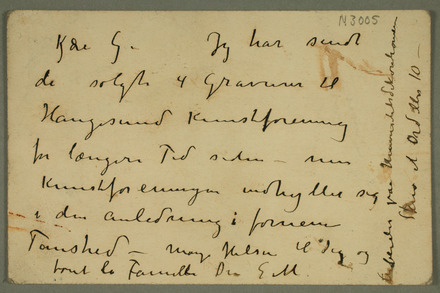 N 3005
Kære G. Jg har sendt
de solgte 4 Gravurer til
Haugesund Kunstforening
for længere Tid siden – men
Kunstforeningen indhyller sig
i den anledning i fornem
Taushed – mange Hilsen til dig og
tout la Famille Din E M